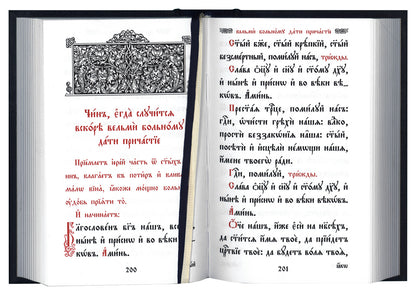 Чи́нъ, є҆гда̀ слꙋчи́тсѧ
вско́рѣ вельмѝ больно́мꙋ
да́ти прича́стїе
Прїе́млетъ і҆ере́й ча́сть ѿ ст҃ы́хъ
та́инъ, влага́етъ въ поти́ръ и҆ влива́етъ
ма́лѡ вїна̀, ꙗ҆́коже мо́щно больно́мꙋ
ᲂу҆до́бь прїѧ́ти то̀.
И҆ начина́етъ:
Бл҃гослове́нъ бг҃ъ на́шъ, всегда̀,
ны́нѣ и҆ при́снѡ и҆ во вѣ́ки вѣ-
кѡ́въ. А҆ми́нь.
200
вельмѝ больно́мꙋ да́ти прича́стїе
Ст҃ы́й бж҃е, ст҃ы́й крѣ́пкїй, ст҃ы́й
безсме́ртный, поми́лꙋй на́съ, три́жды.
Сла́ва ѻ҆ц҃ꙋ̀ и҆ сн҃ꙋ и҆ ст҃о́мꙋ дх҃ꙋ,
и҆ ны́нѣ и҆ при́снѡ и҆ во вѣ́ки вѣ-
кѡ́въ. А҆ми́нь.
Прест҃а́ѧ трⷪ҇це, поми́лꙋй на́съ:
гдⷭ҇и, ѡ҆чи́сти грѣхѝ на́шѧ: влⷣко,
простѝ беззакѡ́нїѧ на̑ша: ст҃ы́й,
посѣтѝ и҆ и҆сцѣлѝ не́мѡщи на́шѧ,
и҆́мене твоегѡ̀ ра́ди.
Гдⷭ҇и, поми́лꙋй, три́жды.
Сла́ва ѻ҆ц҃ꙋ̀ и҆ сн҃ꙋ и҆ ст҃о́мꙋ дх҃ꙋ,
и҆ ны́нѣ и҆ при́снѡ и҆ во вѣ́ки вѣкѡ́въ.
А҆ми́нь.
Ѻ҆́ч҃е на́шъ, и҆́же є҆сѝ на нб҃сѣ́хъ,
да ст҃и́тсѧ и҆́мѧ твоѐ, да прїи́детъ
црⷭ҇твїе твоѐ: да бꙋ́детъ во́лѧ твоѧ̀,
201